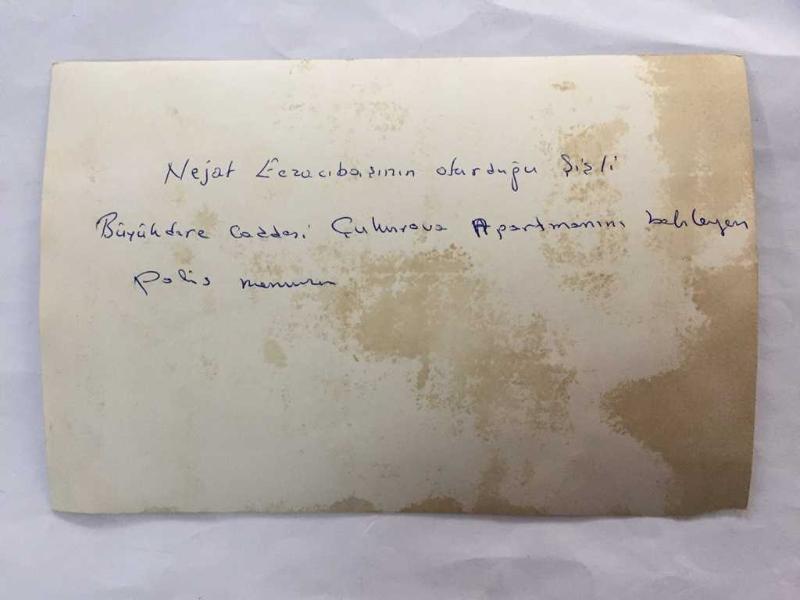 Nejat Eczacıbaşının oturduğu Şişli
Büyükdere Caddesi Çukurova Apartmanını bekleyen
polis memuru